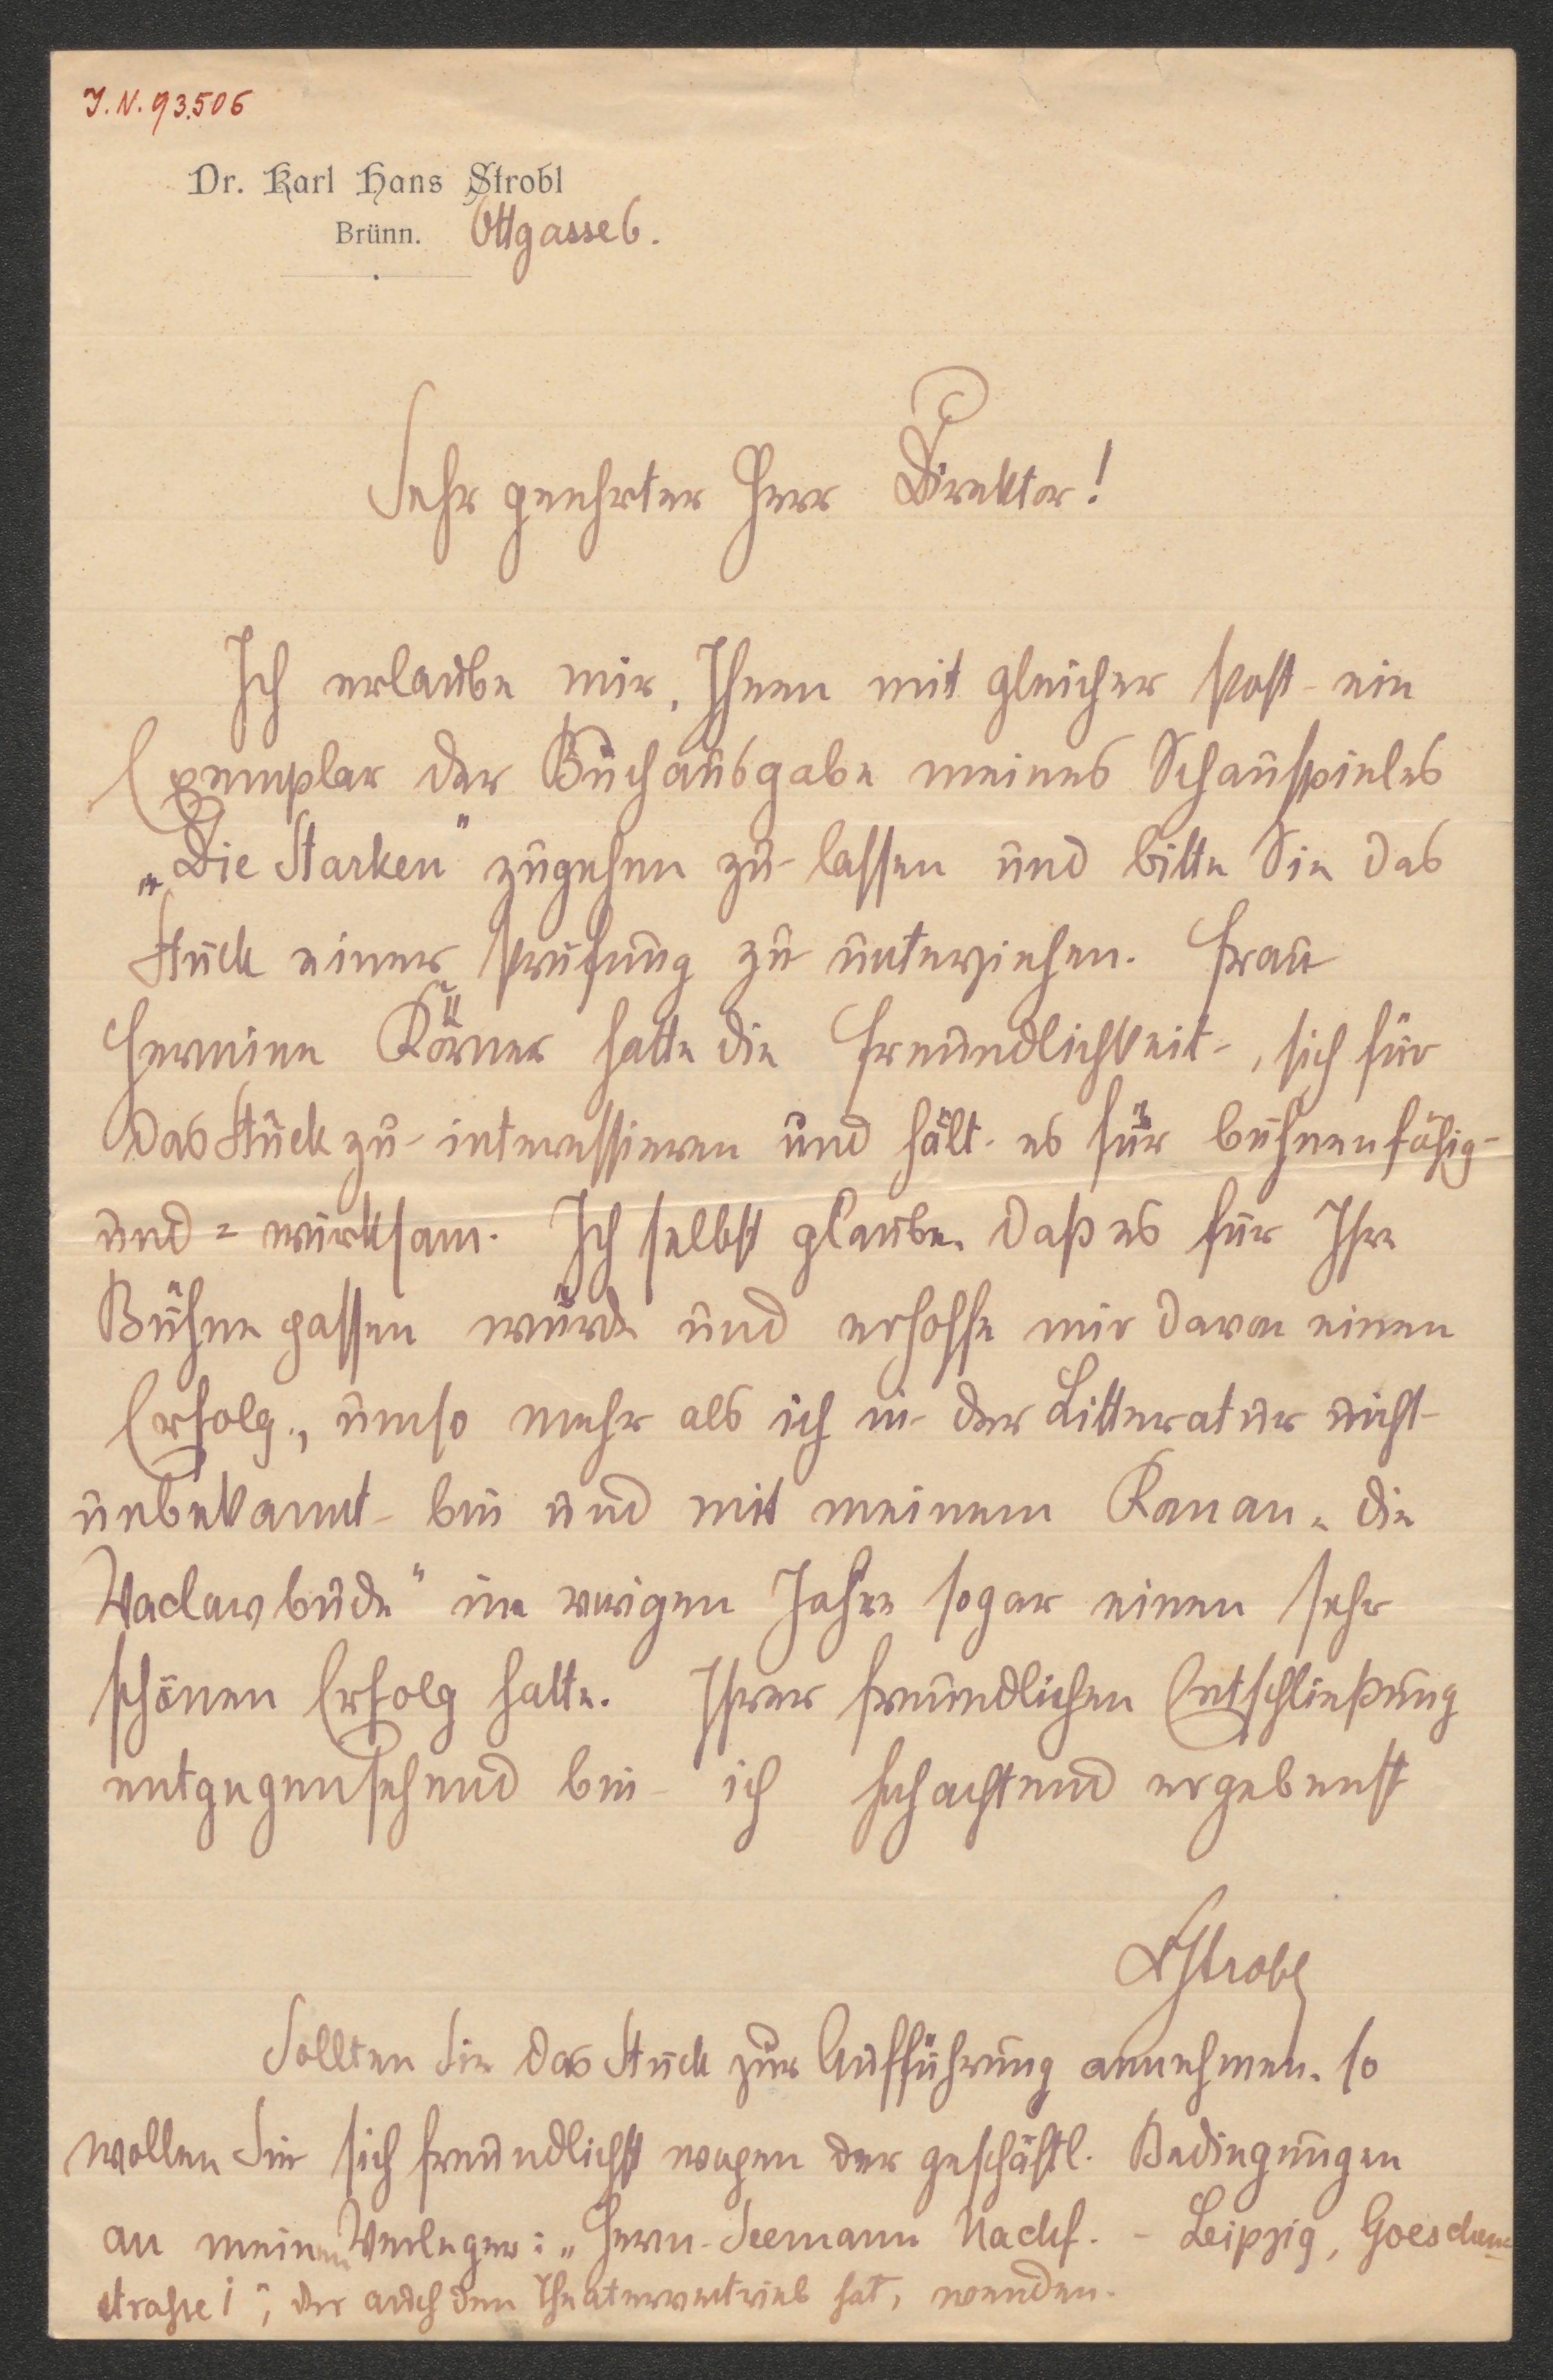 J.N. 93.506
Dr. Karl Hans Strobl
Brünn. Ottgasse 6.
Sehr geehrter Herr Direktor!
Ich erlaube mir, Ihnen mit gleicher Post ein
Exemplar der Buchausgabe meines Schauspieles
„Die Starken" zugehen zu lassen und bitte Sie das
Stück einer Prüfung zu unterziehen. Frau
Hermine Körner hatte die Freundlichkeit, sich für
das Stück zu interessieren und hält es für bühnenfähig-
und = wirksam. Ich selbst glaube, daß es für Ihre
Bühne passen würde und erhoffe mir davon einen
Erfolg, umso mehr als ich in der Litteratur nicht
unbekannt bin und mit meinem Roman „die
Vaclavbude" im vorigen Jahre sogar einen sehr
schönen Erfolg hatte. Ihrer freundlichen Entschließung
entgegensehend bin ich hochachtend ergebenst
KHStrobl
Sollten Sie das Stück zur Aufführung annehmen, so
wollen Sie sich freundlichst wegen der geschäftl. Bedingungen
an meinen Verleger: „Herm. Seemann Nachf. - Leipzig, Goeschen-
strasse 1", der auch den Theatervertrieb hat, wenden.